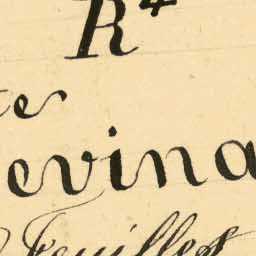 R⁴
te
evina
Feuilles